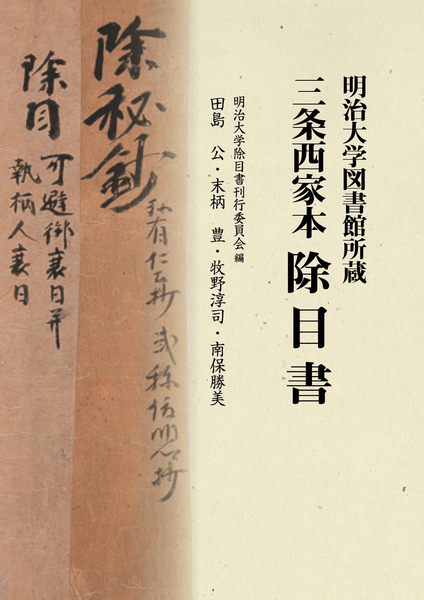 明治大学図書館所蔵
三条西家本 除目書
明治大学除目書刊行委員会 編
田島 公・末柄 豊・牧野淳司・南保勝美
除秘鈔
除目 可避御衰日并
執柄人衰日